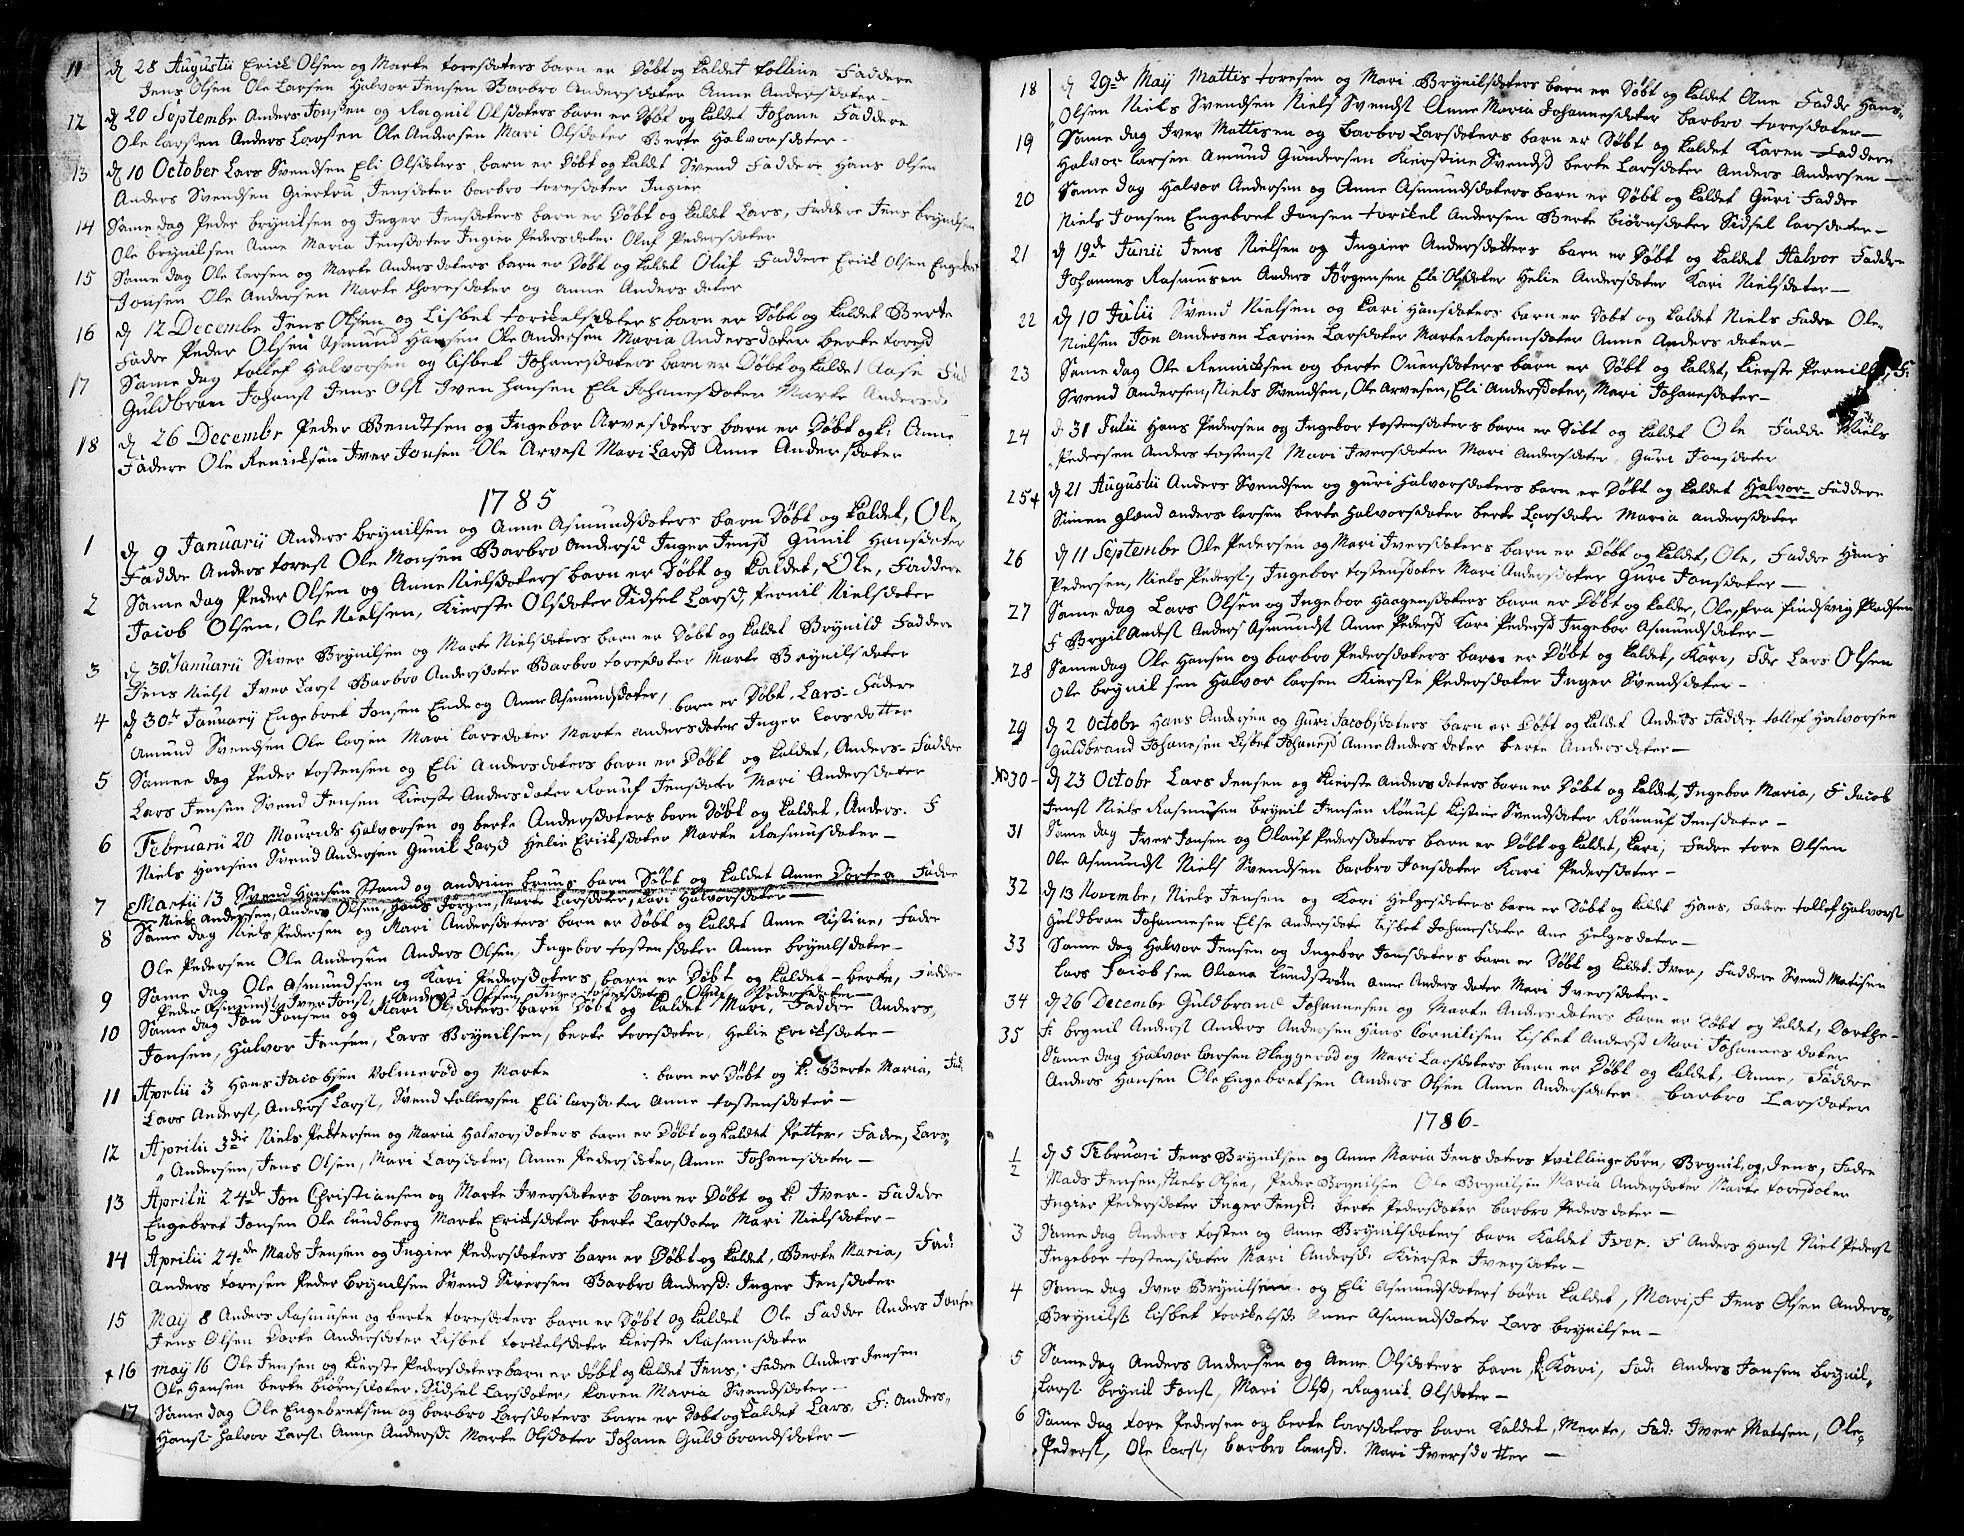 11 d 28 Augustii Erick Olsen og Marte toresdaters barn er Døbt og kaldet tolline Faddere
Jens Olsen Ole Larsen Halvor Jensen Barbro Andersdater Anne Andersdater
12 d 20 Septembr Anders Jonsen og Ragnil Olsdaters barn er Døbt og kaldet Johane Faddere
Ole larsen Anders Larsen Ole Andersen Mari Olsdater Berte Halvorsdater
13 d 10 October Lars Svendsen Eli Olsdaters barn er Døbt og kaldet Svend Faddere Hans Olsen
Anders Svendsen Giertru Jensdater barbro toresdater Ingier
14 Same dag Peder brynilsen og Inger Jensdaters barn er Døbt og kaldet Lars, Faddere Jens brynilsen
Ole brynilsen Anne Maria Jensdater Ingier Pedersdater Oluf Pedersdater
15 Same dag Ole larsen og Marte Andersdaters barn er Døbt og kaldet Oluf Faddere Erick Olsen Engebret
Jonsen Ole Andersen Marte thoresdater og anne Anders dater
16 d 12 Decembr Jens Olsen og Lisbet torkelsdaters barn er Døbt og kaldet Berte
Fadre Peder Olsen Asmund Hansen Ole Andersen Maria Andersdater berte toresd
17 Same dag tollef Halvorsen og lisbet Johanesdaters barn er Døbt og kaldet Aase Fad
Guldbran Johanst Jens Olst Iven hansen Eli Johanesdater Marte Andersd
18 d 26 Decembr Peder Bendtsen og Ingebor Arvesdaters barn er Døbt og k: Anne
Fadere Ole Renriksen Iver Jonsen Ole Arvest Mari Larsd Anne Andersdater
1785
1 d 9 Januarii Anders brynilsen og Anne Asmundsdaters barn Døbt og kaldet, Ole,
Faddre Anders torest Ole Monsen Barbro Andersd Inger Jensd Gunil Hansdater
2 Same dag Peder Olsen og Anne Nielsdaters barn er Døbt og kaldet, Ole, Faddere
Jacob Olsen, Ole Nielsen, Kierste Olsdater Sidsel Larsd, Pernil Nielsdater
3 d 30t Januarii Siver Brynilsen og Marte Nielsdaters barn er Døbt og kaldet Brynild Faddere
Jens Nielst Iver Larst Barbro Andersdater Barbro toresdater Marte Brynilsdater
4 d 30t January Engebret Jonsen Ende og Anne Asmundsdater, barn er Døbt. Lars- Fadere
Amund Svendsen Ole larsen Mari larsdater Marte andersdater Inger larsdotter
5 Samme dag Peder tostensen og Eli Andersdaters barn er Døbt og kaldet, Anders- Faddre
Lars Jensen Svend Jensen Kierste Andersdater Ronuf Jensdater Mari Andersdater
6 Februarii 20 Maurids Halvorsen og berte Andersdaters barn Døbt og kaldet, Anders. F
Niels Hansen Svend Andersen Gunil Larsd Helie Ericksdater Marte Rasmusdater-
7 Martii 13 Svend Hansen Stand og andrine bruns barn Døbt og kaldet Anne Dortea Fadre
Niels Andersen, Anders Olsen, Hans Jørgen, Marte Larsdater, Kari Halvorsdater-
8 Same dag Niels Pedersen og Mari Andersdaters barn er Døbt og kaldet Anne Kistine, Fadre
Ole Pedersen Ole Andersen Anders Olsen, Ingebor tostensdater Anne brynilsdater-
9 Same dag Ole Asmundsen og Kari Pedersdaters barn er Døbt og kaldet- berte, Faddre
Peder Asmundst, Iver Jonst, Anders Olsen, Inger Pedersdater-
10 Same dag Jon Jonsen og Mari Olsdaters barn Døbt og kaldet Mari, Faddre Anders,
Jonsen, Halvor Jensen, Lars Brynilsen, berte toresdater, Helie Ericksdater-
11 Aprilii 3 Hans Jacobsen Volmerød og Marte : barn er Døbt og k: Berte Maria, Fad:
Lars Anderst, Anders Larst, Svend tollevsen Eli larsdater Anne tostensdater-
12 Aprilii 3die Niels Pettersen og Maria Halvorsdaters barn er Døbt og kaldet Petter. Fadre, Lars-
Andersen, Jens Olsen, Mari Larsdater, Anne Pedersdater, Anne Johanesdater-
13 Aprilii 24de Jon Christiansen og Marte Iversdaters Barn er Døbt og k: Iver- Faddre
Engebret Jonsen Ole Lundberg Marte Ericksdater berte Larsdater Mari Nielsdater-
14 Aprilii 24de Mads Jensen og Ingier Pedersdaters barn er Døbt og kaldet, Berte Maria, Fad:
Anders toresen Peder Brynilsen Svend Siversen Barbro Andersd: Inger Jensdater
15 May 8 Anders Rasmusen og berte toresdaters barn er Døbt og kaldet Ole Faddre Anders Jonsen
Jens Olsen Dorte Andersdater Lisbet torkelsdater kierste Rasmusdater
+ 16 may 16 Ole Jensen og kierste Pedersdaters barn er døbt og kaldet Jens, Fadere Anders Jensen
Ole Hansen berte biørnsdater. Sidsel Larsdater, Karen Maria Svendsdater-
17 Same dag Ole Engebretsen og barbro Larsdaters barn er Døbt og kaldet Lars, F: Anders-
Hanst Halvor Larst Anne Andersd: Marte Olsdater Johane Guldbrandsdater-
18 d 29de May Mattis toresen og Mari Brynilsdaters barn er Døbt og kaldet Ane Fadde Hans-
Olsen Niels Svendsen Niels Svendst Anne Maria Johannesdater barbro toresdater-
19 Same dag Iver Mattisen og barbro Larsdaters barn er Døbt og kaldet Karen Faddere
Halvor larsen Amund Gundersen Kierstine Svendsd berte Larsdater Anders Andersen-
20 Same dag Halvor Andersen og Anne Asmundsdaters barn er Døbt og kaldet Guri Fadde
Niels Jonsen Engebret Jonsen torkel Andersen Berte biørnsdater Sidsel larsdater-
21 d 19de Junii Jens Nielsen og Ingier Andersdatters barn er Døbt og kaldet Halvor Faddre
Johannes Rasmusen Anders Jørgensen Eli Olsdater Helie Andersdater Kari Nielsdater-
22 d 10 Julii Svend Nielsen og Kari Hansdaters barn er Døbt og kaldet Niels Fadre Ole-
Nielsen Jon Andersen Larine Larsdater Marte Rasmusdater Anne Anders dater-
23 Same dag Ole Renricksen og berte Ouensdaters barn er Døbt og kaldet, kierste Pernille, F:
Svend Andersen, Niels Svendsen, Ole Arvesen, Eli Andersdater, Mari Johanesdater-
24 d 31 Julii Hans Pedersen og Ingebor tostensdaters barn er Døbt og kaldet Ole Fadde Niels
Pedersen Anders tostenst Mari Iversdater Mari Andersdater Guri Jonsdater
25+ d 21 Augustii Anders Svendsen og guri Halvorsdaters barn er Døbt og kaldet Halvor- Faddere
Simen glend anders larsen berte Halvorsdater berte Larsdater Maria andersdater
26 d 11 Septembr Ole Pedersen og Mari Iversdaters barn er Døbt og kaldet, Ole, Faddre Hans
Pedersen, Niels Pederst, Ingebor tostensdater Mari Andersdater Guri Jonsdater-
27 Same dag Lars Olsen og Ingebor Haagensdaters barn er Døbt og kalder, Ole, fra Findsvig Pladsen
F Brynil Andest Anders Asmundst Anne Pedersd Kari Pedersd Ingebor Asmundsdater-
28 Same dag Ole Hansen og barbro Pedersdaters barn er Døbt og kaldet, Kari, Fdr Lars Olsen
Ole brynilsen Halvor larsen Kierste Pedersdater Inger Svendsdater-
29 d 2 Octobr Hans Andersen og Guri Jacobsdaters barn er Døbt og kaldet Anders Faddre tollef Halvorsen
Guldbrand Johanesen Lisbet Johanesd Anne Anders dater berte Andersdater-
No 30- d 23 Octobr Lars Jensen og Kierste Andersdaters barn er Døbt og kaldet, Ingebor Maria, F Jacob
Jenst Niels Rasmusen Brynil Jensen Rønuf Kistine Svendsdater Rønnuf Jensdater-
31 Same dag Iver Jonsen og Olauf Pedersdaters barn er Døbt og kaldet, Kari, Fadre tore Olsen
Ole Asmundst Niels Svendsen barbro Jonsdater Kari Pedersdater-
32 d 13 Novembr, Niels Jensen og Kari Helgesdaters barn er Døbt og kaldet Hans, Fadere tollef Halvorst
Guldbran Johannesen Else Andersdate lisbet Johanesdater Ane Helgesdater-
33 Same dag Halvor Jensen og Ingebor Jonsdaters barn er Døbt og kaldet. Iver, Faddere Svend Matisen
Lars Jacobsen Oleana Lundstrøm anne Anders dater Mari Iversdater-
34 d 26 Decembr Guldbrand Johannesen og Marte Andersdaters barn er Døbt og kaldet, Dorthe-
F: brynil Anderst Anders Andersen Hans Cornilisen Lisbet Andersd Mari Johannesdater
35 Same dag Halvor Larsen Skeggerød og Mari Larsdaters barn er Døbt og kaldet, Anne, Faddre
Anders Hansen Ole Engebretsen Anders Olsen Anne Andersdater barbro Larsdater
1786-
1/2 d 5 Februari Jens Brynilsen og Anne Maria Jensdaters tvillingebørn, Brynil, og Jens, Fadre
Mads Jensen, Niels Olsen, Peder Brynilsen Ole Brynilsen Maria Andersdater Marte toresdater
Ingier Pedersdater Inger Jensd: berte Pedersdater barbro Pedersdater-
3 Same dag Anders tosten og Anne Brynilsdaters barn Kaldet Iver. F Anders Hanst Niel Pederst
Ingebor tostensdater Mari Andersd: Kierste Iversdater-
4 Same dag Iver Brynilsen og Eli Asmundsdaters børn kaldet, Mari, F Jens Olsen Anders-
Brynilst lisbet torkelsd: Anne Asmundsdater Lars brynilsen-
5 Same dag Anders Andersen og Anne Olsdaters barn, k: Kari, Fad: Anders Jonsen brynil-
Larst brynil Jonst, Mari Olsd, Ragnil Olsdater-
6 Same dag tore Pedersen og berte larsdaters barn kaldet, Merte, Fad: Iver Matisen, Ole-
Pederst, Ole larst, barbro larsd. Mari Iversdotter-